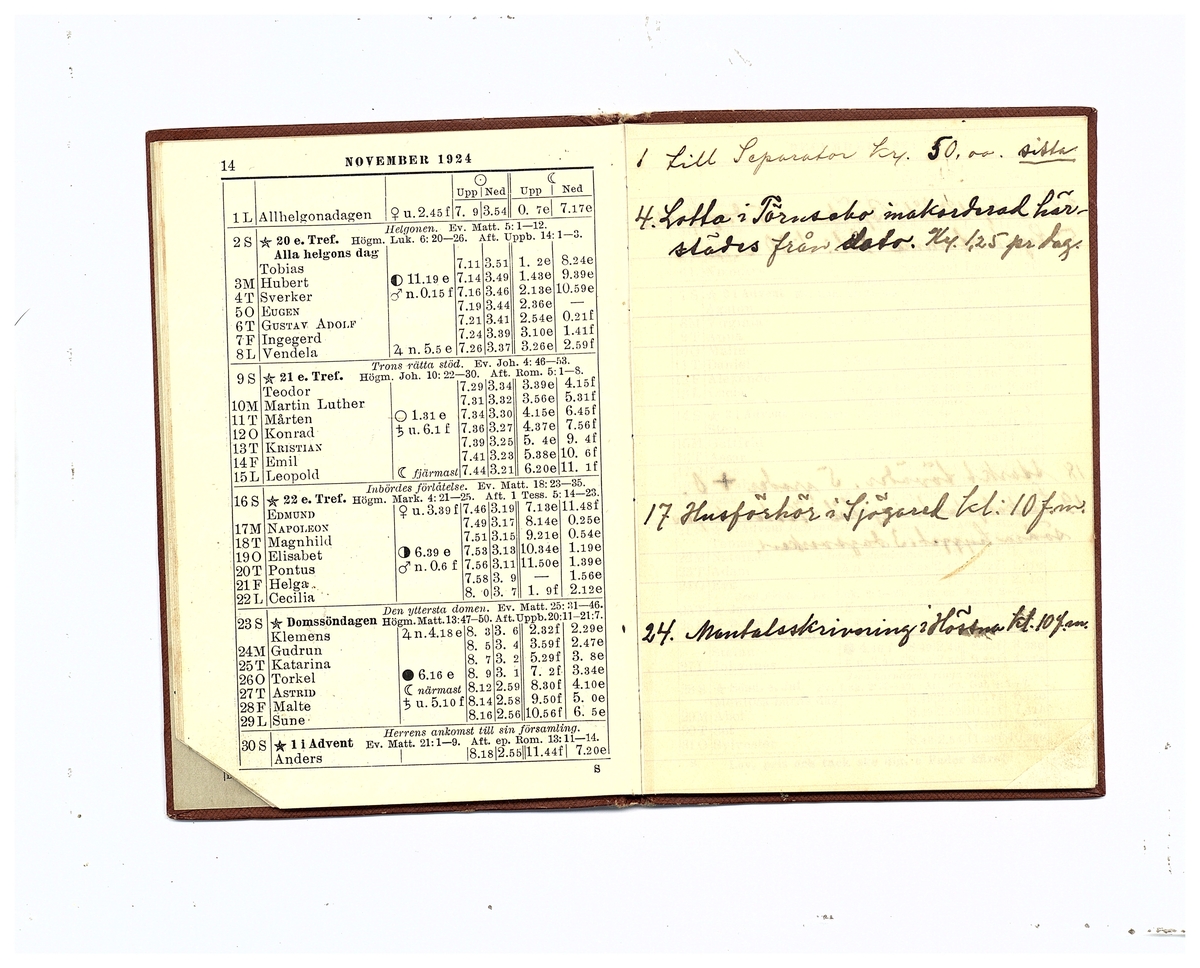 14 NOVEMBER 1924
☉ ☾
Upp Ned Upp Ned
1 L Allhelgonadagen ♀ u. 2.45 f 7. 9 3.54 0. 7e 7.17e
Helgonen. Ev. Matt. 5: 1—12.
2 S ★ 20 e. Tref. Högm. Luk. 6: 20—26. Aft. Uppb. 14: 1—3.
Alla helgons dag
Tobias 7.11 3.51 1. 2e 8.24e
3 M Hubert ◐ 11.19 e 7.14 3.49 1.43e 9.39e
4 T Sverker ♂ n. 0.15 f 7.16 3.46 2.13e 10.59e
5 O EUGEN 7.19 3.44 2.36e —
6 T GUSTAV ADOLF 7.21 3.41 2.54e 0.21f
7 F Ingegerd 7.24 3.39 3.10e 1.41f
8 L Vendela ♃ n. 5.5 e 7.26 3.37 3.26e 2.59f
Trons rätta stöd. Ev. Joh. 4: 46—53.
9 S ★ 21 e. Tref. Högm. Joh. 10: 22—30. Aft. Rom. 5: 1—8.
Teodor 7.29 3.34 3.39e 4.15f
10 M Martin Luther 7.31 3.32 3.56e 5.31f
11 T Mårten ○ 1.31 e 7.34 3.30 4.15e 6.45f
12 O Konrad ♄ u. 6.1 f 7.36 3.27 4.37e 7.56f
13 T KRISTIAN 7.39 3.25 5. 4e 9. 4f
14 F Emil 7.41 3.23 5.38e 10. 6f
15 L Leopold ☾ fjärmast 7.44 3.21 6.20e 11. 1f
Inbördes förlåtelse. Ev. Matt. 18: 23—35.
16 S ★ 22 e. Tref. Högm. Mark. 4: 21—25. Aft. 1 Tess. 5: 14—23.
EDMUND ♀ u. 3.39 f 7.46 3.19 7.13e 11.48f
17 M NAPOLEON 7.49 3.17 8.14e 0.25e
18 T Magnhild 7.51 3.15 9.21e 0.54e
19 O Elisabet ◑ 6.39 e 7.53 3.13 10.34e 1.19e
20 T Pontus ♂ n. 0.6 f 7.56 3.11 11.50e 1.39e
21 F Helga 7.58 3. 9 — 1.56e
22 L Cecilia 8. 0 3. 7 1. 9f 2.12e
Den yttersta domen. Ev. Matt. 25: 31—46.
23 S ★ Domssöndagen Högm. Matt. 13: 47—50. Aft. Uppb. 20: 11—21: 7.
Klemens ♃ n. 4.18 e 8. 3 3. 6 2.32f 2.29e
24 M Gudrun 8. 5 3. 4 3.59f 2.47e
25 T Katarina 8. 7 3. 2 5.29f 3. 8e
26 O Torkel ● 6.16 e 8. 9 3. 1 7. 2f 3.34e
27 T ASTRID ☾ närmast 8.12 2.59 8.30f 4.10e
28 F Malte ♄ u. 5.10 f 8.14 2.58 9.50f 5. 0e
29 L Sune 8.16 2.56 10.56f 6. 5e
Herrens ankomst till sin församling.
30 S ★ 1 i Advent Ev. Matt. 21: 1—9. Aft. ep. Rom. 13: 11—14.
Anders 8.18 2.55 11.44f 7.20e
S
1 till Separator kr. 50,00. sista
4. Lotta i Törnsabo inakorderad här-
städes från dato. Kr. 1,25 pr dag.
17 Husförhör i Sjögared kl. 10 f.m.
24. Mantalsskrivning i Hössna kl. 10 f.m.